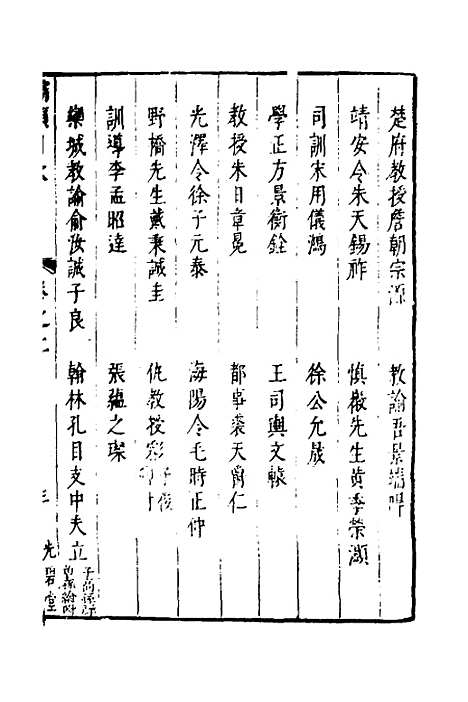 楚府教授詹朝宗源 教諭吾景端
靖安令朱天錫祚 慎徽先生黃季榮灝
司訓宋用儀鴻 徐公允晟
學正方景衡銓 王司輿文轅
教授朱日章冕 都事裘天爵仁
光澤令徐子元泰 海陽令毛時正仲
野橋先生戴秉誠圭 仇教授彩
訓導李孟昭達 張蘊之琛
欒城教諭俞汝誠子良 翰林孔目支中夫立
卷之二 三 光碧堂